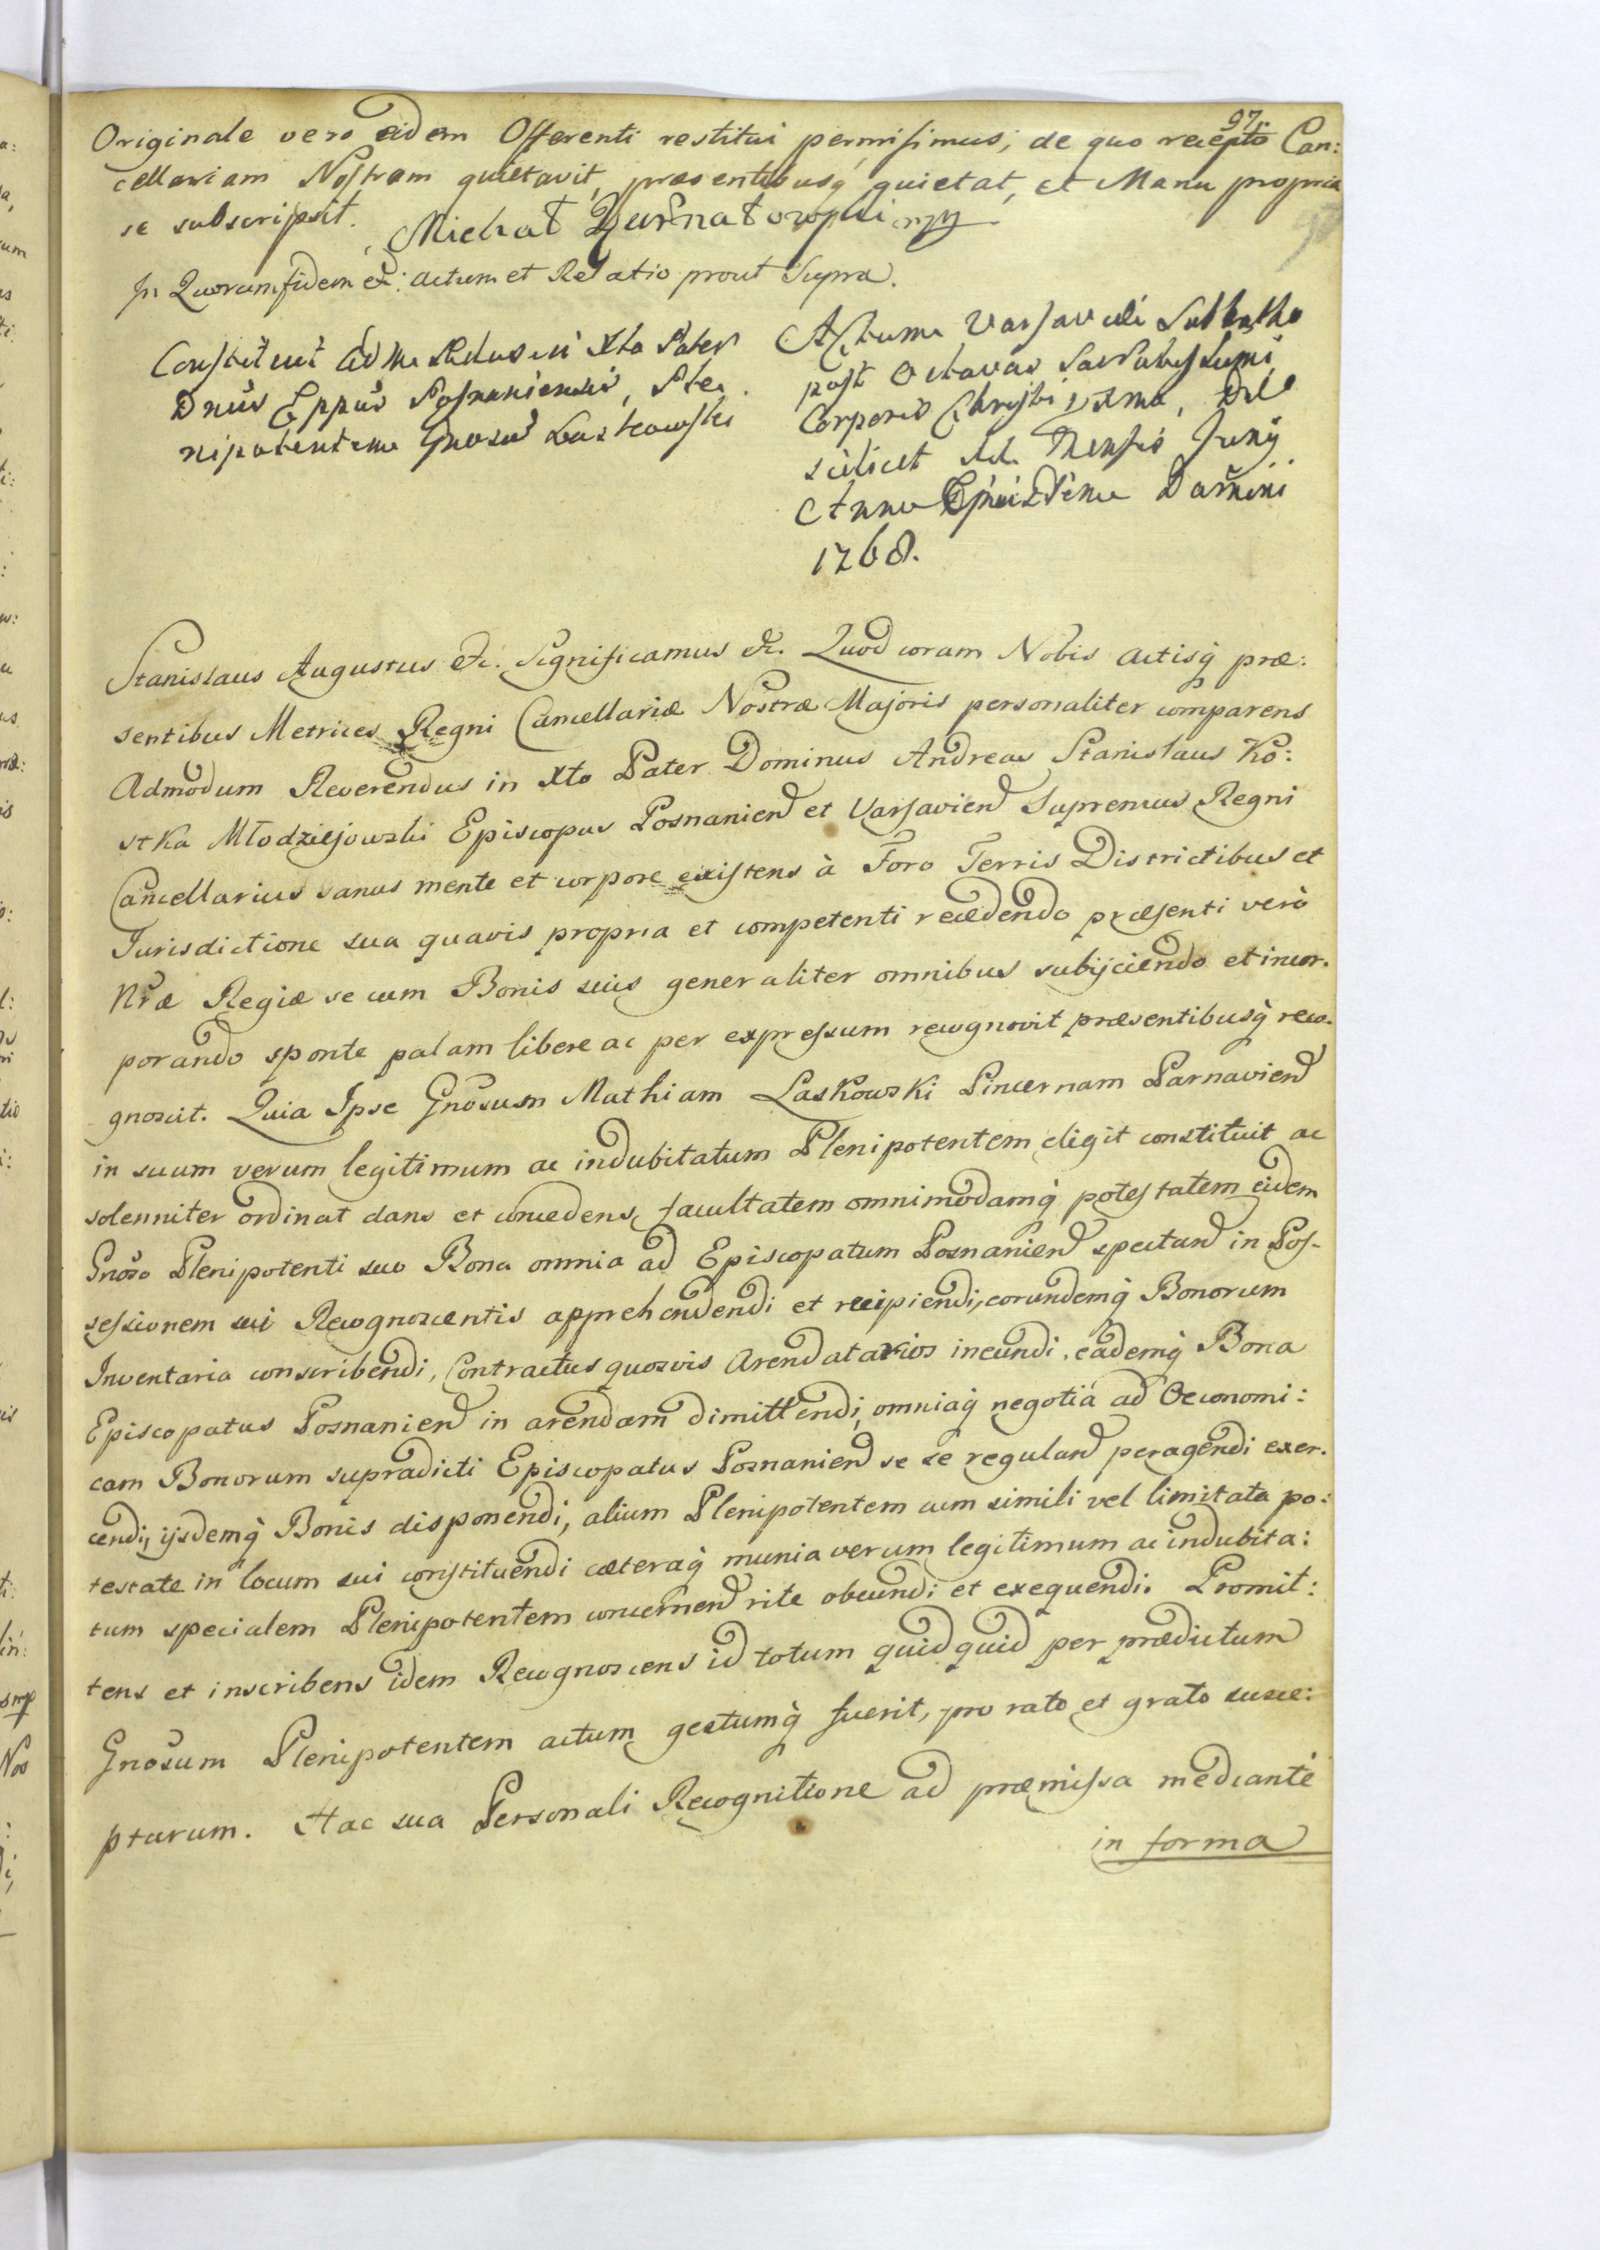 97.
Originale vero eidem Offerenti restitui permisimus, de quo recepto Can:
cellariam Nostram quietavit, praesentibusq́ quietat, et Manu propria
se subscripsit. Michał mp
In Quorum fidem etc: actum et Relatio prout Supra.
Constituit Adm Rdus in Xto Pater
Dnus Eppus Posnaniensis, Ple
nipotentem Gnosu Laskowski
Actum Varsaviæ Sabbatho
post Octavas Sacratissimi
Corporis Christi Dni, Die
scilicet Mensis Junij
Anno Ejusdem Domini
1768.
Stanislaus Augustus etc. Significamus etc. Quod coram Nobis actisq́ præ:
sentibus Metrices Regni Cancellariæ Nostræ Majoris personaliter comparens
Admodum Reverendus in Xto Pater Dominus Andreas Stanislaus Ko:
stka Młodziejowski Episcopus Posnanien et Varsavien Supremus Regni
Cancellarius sanus mente et corpore existens à Foro Terris Districtibus et
Jurisdictione sua quavis propria et competenti recedendo præsenti verò
Nræ Regiæ se cum Bonis suis generaliter omnibus subijciendo et incor.
porando sponte palam libere ac per expressum recognovit præsentibusq́ reco.
gnoscit. Quia Ipse Gnosum Mathiam Laskowski Pincernam Parnavien
in suum verum legitimum ac indubitatum Plenipotentem eligit constituit ac
solenniter ordinat dans et concedens facultatem omnimodamq́ potestatem eidem
Gnoso Plenipotenti suo Bona omnia ad Episcopatum Posnanien spectan in Pos-
sessionem sui Recognoscentis apprehendendi et recipiendi, eorundemq́ Bonorum
Inventaria conscribendi, Contractus quosvis Arendatarios ineundi, eademq́ Bona
Episcopatus Posnanien in arendam dimittendi, omniaq́ negotia ad Oeconomi:
cam Bonorum supradicti Episcopatus Posnanien se se regulan peragendi exer.
cendi, ijsdemq́ Bonis disponendi, alium Plenipotentem cum simili vel limitata po:
testate in locum sui constituendi cæteraq́ munia verum legitimum ac indubita:
tum specialem Plenipotentem concernen rite obeundi et exequendi. Promit:
tens et inscribens idem Recognoscens id totum quidquid per prædictum
Gnosum Plenipotentem actum gestumq́ fuerit, pro rato et grato susce:
pturum. Hac sua Personali Recognitione ad præmissa mediante
in forma